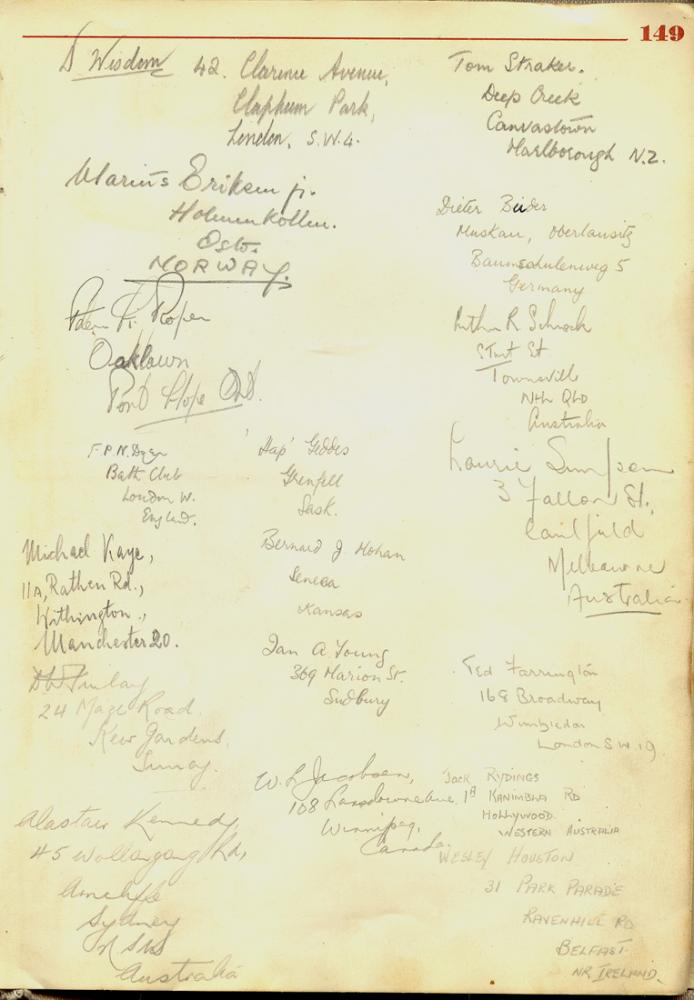 149
D Wisdom 42. Clarence Avenue,
Clapham Park,
London, S.W.4.
Marius Eriksen jr.
Holmenkollen.
Oslo.
NORWAY.
K. Roper
Oaklawn
Port Hope Ont.
F.P.N. Dyer
Bath Club
London W.
England.
Michael Kaye,
11A, Rathen Rd.,
Withington.,
Manchester 20.
Finlay
24 Maze Road.
Kew Gardens,
Surrey.
Alastair Kennedy,
45 Wollongong Rd,
Arncliffe
Sydney
NSW
Australia
'Hap' Geddes
Grenfell
Sask.
Bernard J Mohan
Seneca
Kansas
Ian A Young
369 Marion St.
Sudbury
W. L Jacobsen,
108 Lansdowne Ave.
Winnipeg,
Canada.
Tom Straker.
Deep Creek
Canvastown
Marlborough N.Z.
Dieter Beider
Muskau, Oberlausitz
Baumschulenweg 5
Germany
Arthur R Schrock
Sturt St
Townsville
Nth QLD
Australia
Laurie Simpson
3 Fallon St.,
Caulfield
Melbourne
Australia
Ted Farrington
168 Broadway
Wimbledon
London SW.19
JACK RYDINGS
1A KANIMBLA RD
HOLLYWOOD.
WESTERN AUSTRALIA
WESLEY HOUSTON
31 PARK PARADE
RAVENHILL RD
BELFAST.
NR. IRELAND.